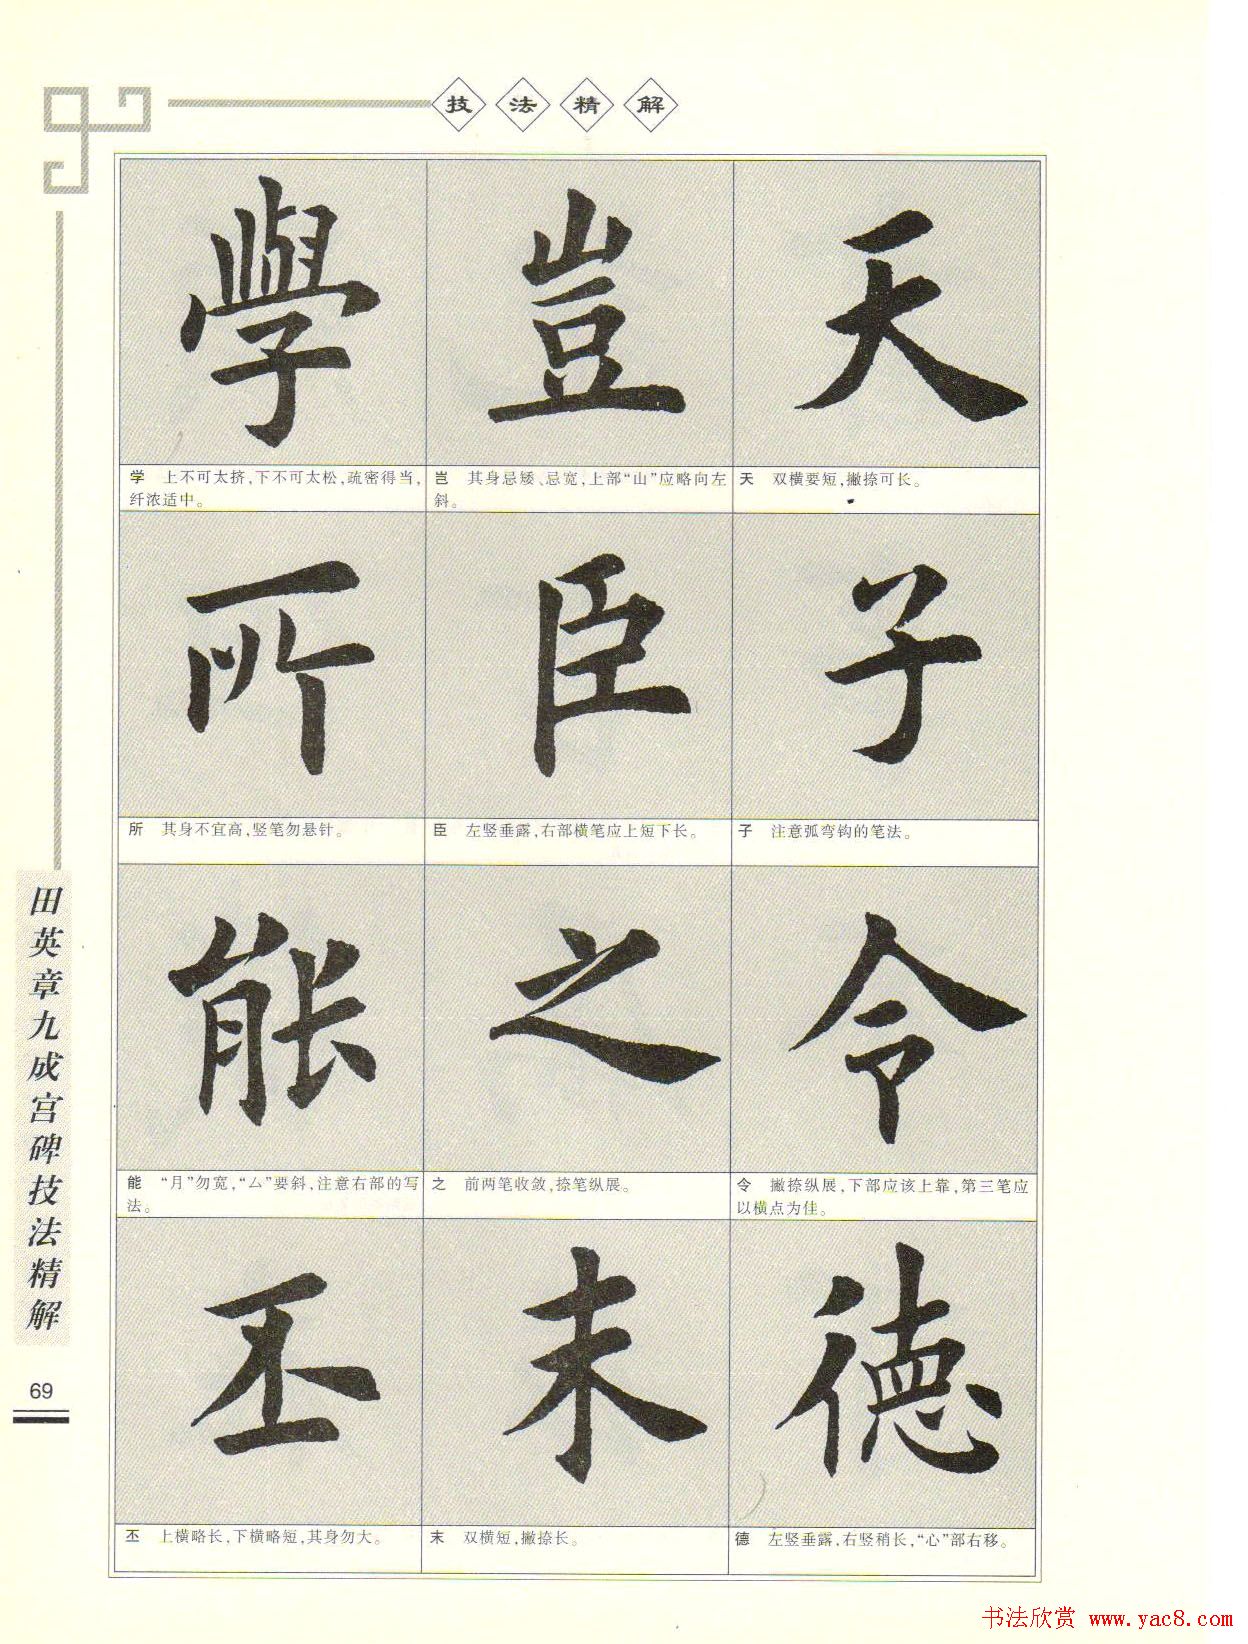 技法精解
學 豈 天
学 上不可太挤,下不可太松,疏密得当,
纤浓适中。
岂 其身忌矮、忌宽,上部“山”应略向左
斜。
天 双横要短,撇捺可长。
所 臣 子
所 其身不宜高,竖笔勿悬针。
臣 左竖垂露,右部横笔应上短下长。
子 注意弧弯钩的笔法。
能 之 令
能 “月”勿宽,“厶”要斜,注意右部的写
法。
之 前两笔收敛,捺笔纵展。
令 撇捺纵展,下部应该上靠,第三笔应
以横点为佳。
丕 末 德
丕 上横略长,下横略短,其身勿大。
末 双横短,撇捺长。
德 左竖垂露,右竖稍长,“心”部右移。
田英章九成宫碑技法精解
69
书法欣赏 www.yac8.com